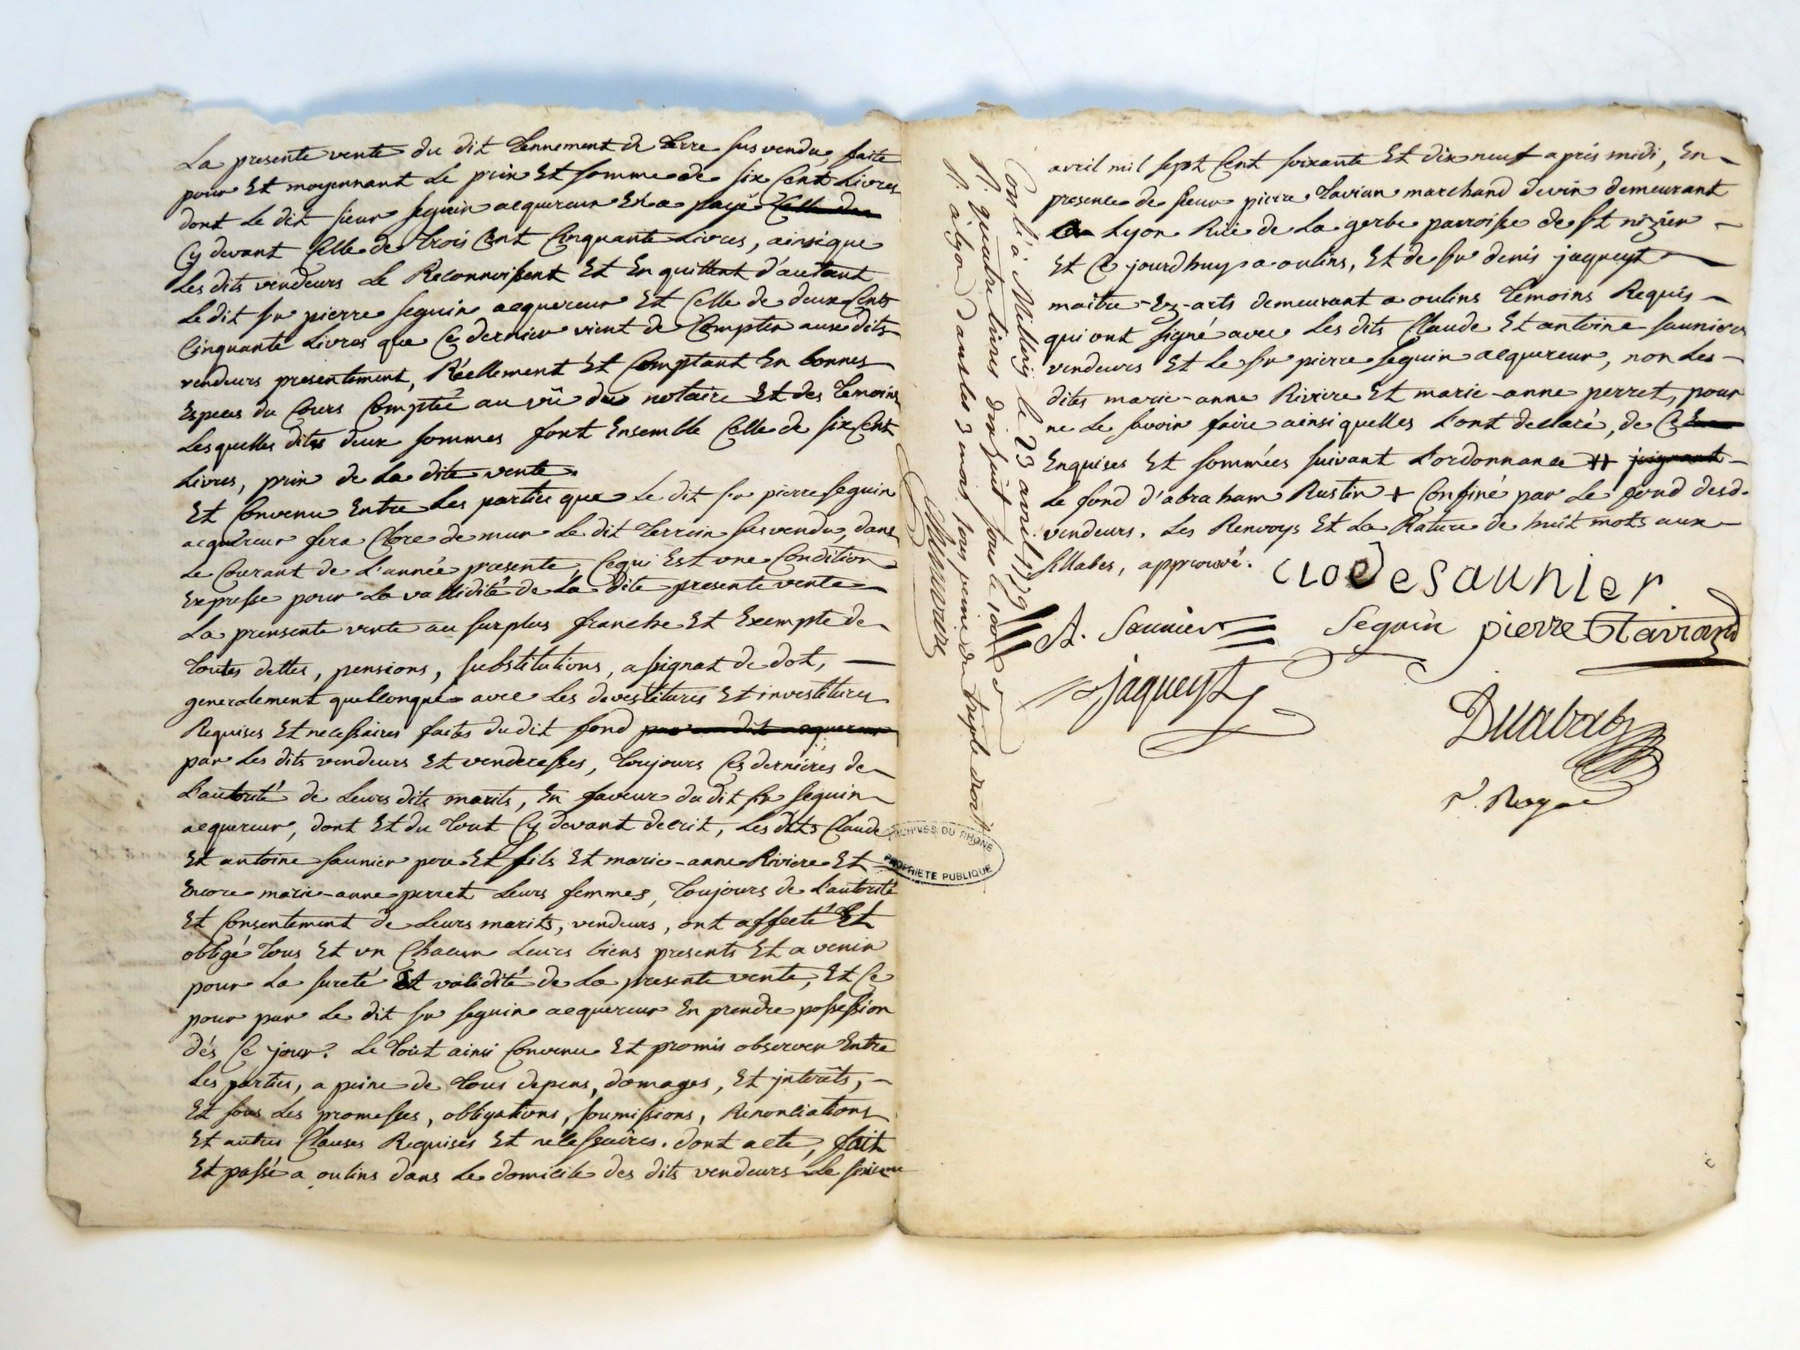 La presente vente du dit tennement de terre sus vendu, faite
pour Et moyennant Le prix Et somme de six Cent Livres
dont Le dit sieur seguin acquereur En a payé
Cy devant Celle de trois Cent Cinquante Livres, ainsi que
Les dits vendeurs Le Reconnoissent Et En quittent d'autant
Le dit sr pierre seguin acquereur Et Celle de deux Cents
Cinquante Livres que Ce dernier vient de Compter aux dits
vendeurs presentement, Réellement Et Comptant En bonnes
Especes du Cours Comptée au vû du notaire Et des temoins
Lesquelles dites deux sommes font Ensemble Celle de six Cent
Livres, prix de La dite vente.
Et Convenu Entre Les parties que Le dit sr pierre seguin
acquereur fera Clore de mur Le dit terrein sus vendu, dans
Le Courant de L'année presente, Ce qui Est une Condition
Expresse pour La vallidité de La dite presente vente
La prensente vente au surplus franche Et Exempte de
toutes dettes, pensions, substitutions, assignat de dot,
generalement quelconque avec Les devestitures Et investitures
Requises Et necessaires faites du dit fond par au dit acquereur
par Les dits vendeurs Et venderesses, toujours Ces dernieres de
L'autorité de Leurs dits marits, En faveur du dit sr seguin
acquereur, dont Et du tout Cy devant decrit, Les dits Claude
Et antoine saunier pere Et fils Et marie-anne Riviere Et
Encore marie-anne perret Leurs femmes, toujours de L'autorité
Et Consentement de Leurs marits, vendeurs, ont affecté Et
obligé tous Et un Chacun Leurs biens presents Et a venir
pour La sureté Et validité de La presente vente, Et Ce
pour par Le dit sr seguin acquereur En prendre possession
dés Ce jour. Le tout ainsi Convenu Et promis observer Entre
Les parties, a peine de tous depens, domages, Et interêts,
Et sous Les promesses, obligations, soumissions, Renonciations
Et autres Clauses Requises Et necessaires. dont acte, fait
Et passé a oulins dans Le domicile des dits vendeurs Le sixieme
Con.lé à Millery le 23 avril 1779
R. quatre livres dix huit sous
R. a lyon dans les 3 mois sous peine du triple droit
ARCHIVES DU RHONE
PROPRIETE PUBLIQUE
avril mil sept Cent soixante Et dix neuf après midi, En
presence de sieur pierre tavian marchand de vin demeurant
a Lyon Rüe de La gerbe parroisse de st nizier
Et Ce jourdhuy a oulins, Et de sr denis jaqueyt
maitre-Es-arts demeurant a oulins temoins Requis
qui ont signé avec Les dits Claude Et antoine saunier
vendeurs Et Le sr pierre seguin acquereur, non Les
dites marie-anne Riviere Et marie-anne perret, pour
ne Le savoir faire ainsi quelles L'ont declaré, de Ce
Enquises Et sommées suivant L'ordonnance ++ joignant
Le fond d'abraham Rustin + Confiné par Le fond desd.
vendeurs. Les Renvoys Et La Rature de huit mots aux
sillabes, approuvé. CLODe SAUNIER
A. Saunier Seguin pierre Tavian
Jaqueyt